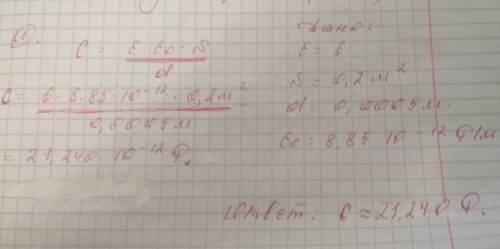 (1).
C = ε · εo · S
d
C = 6 · 8.85 · 10⁻¹² · 0,2 м²
0,0005 м
= 21,240 · 10⁻¹² Ф.
Дано:
ε = 6
S = 0,2 м²
d = 0,0005 м.
εo = 8,85 · 10⁻¹² Ф/м
Ответ: C ≈ 21,240 Ф.